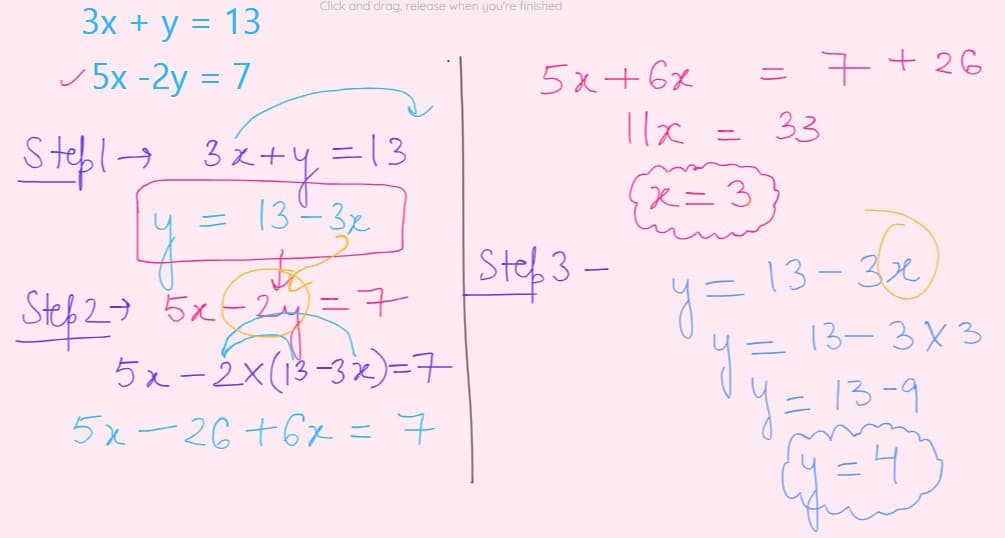 Click and drag, release when you're finished
3x + y = 13
5x -2y = 7
Step1→ 3x+y=13
y = 13-3x
Step2→ 5x-2y=7
5x-2×(13-3x)=7
5x-26+6x = 7
5x+6x = 7+26
11x = 33
x=3
Step3-
y=13-3x
y=13-3×3
y=13-9
y=4